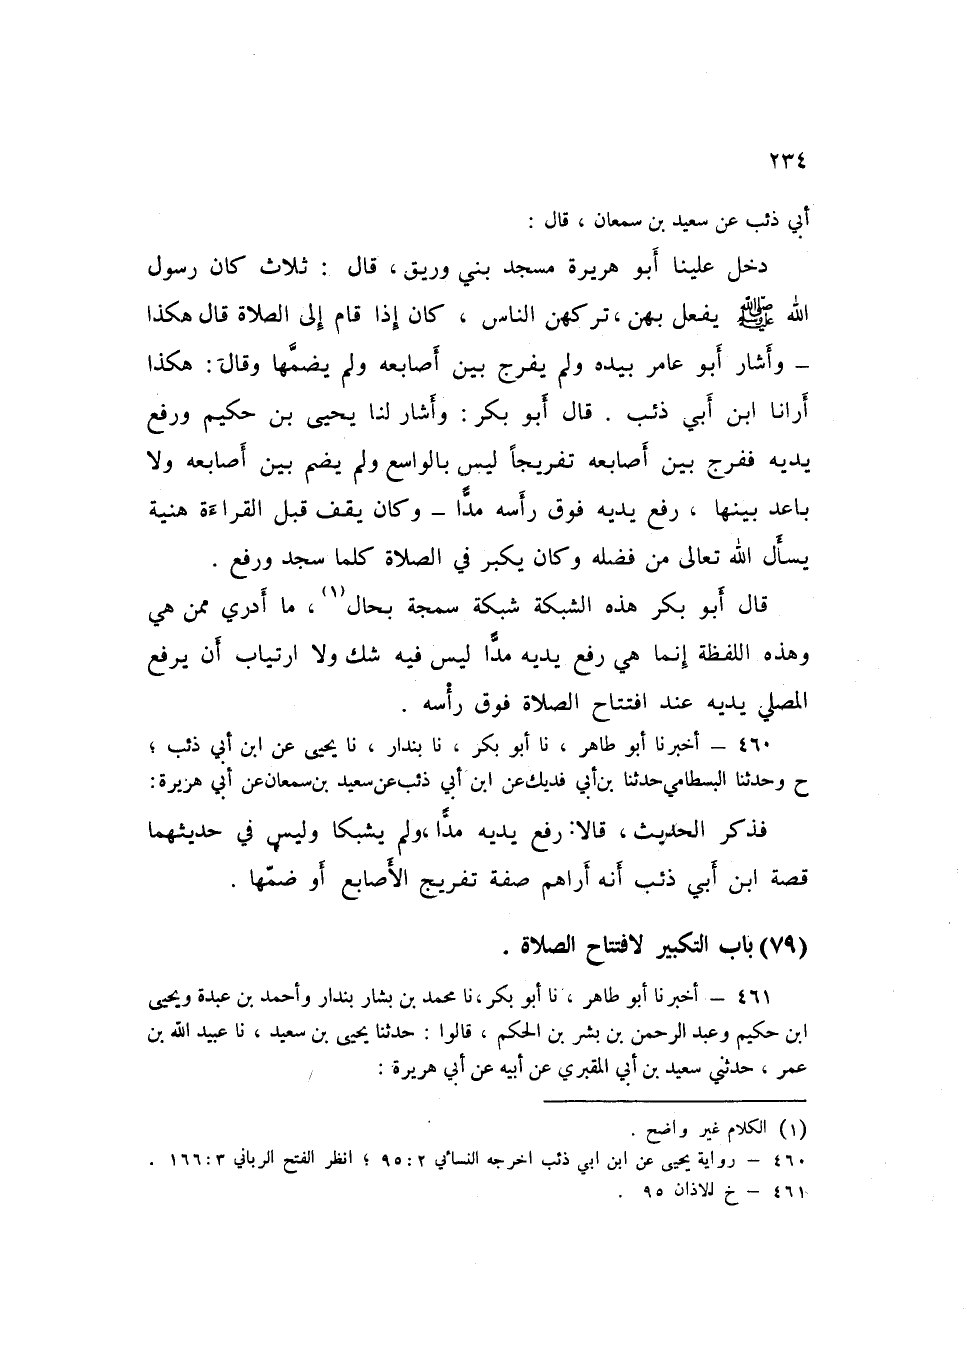 ٢٣٤
أبي ذئب عن سعيد بن سمعان ، قال :
دخل علينا أَبو هريرة مسجد بني وريق ، قال : ثلاث كان رسول
الله ﷺ يفعل بهن ، تركهن الناس ، كان إِذا قام إِلى الصلاة قال هكذا
ـ وأَشار أَبو عامر بيده ولم يفرج بين أَصابعه ولم يضمَّها وقال : هكذا
أَرانا ابن أَبي ذئب . قال أَبو بكر : وأَشار لنا يحيى بن حكيم ورفع
يديه ففرج بين أَصابعه تفريجاً ليس بالواسع ولم يضم بين أَصابعه ولا
باعد بينها ، رفع يديه فوق رأَسه مدًّا ـ وكان يقف قبل القراءة هنية
يسأَل الله تعالى من فضله وكان يكبر في الصلاة كلما سجد ورفع .
قال أَبو بكر هذه الشبكة شبكة سمجة بحال(١) ، ما أَدري ممن هي
وهذه اللفظة إِنما هي رفع يديه مدًّا ليس فيه شك ولا ارتياب أَن يرفع
المصلي يديه عند افتتاح الصلاة فوق رأْسه .
٤٦٠ ـ أخبرنا أبو طاهر ، نا أبو بكر ، نا بندار ، نا يحيى عن ابن أبي ذئب ؛
ح وحدثنا البسطامي حدثنا بن أبي فديك عن ابن أبي ذئب عن سعيد بن سمعان عن أبي هزيرة :
فذكر الحديث ، قالا : رفع يديه مدًّا ، ولم يشبكا وليس في حديثهما
قصة ابن أَبي ذئب أَنه أَراهم صفة تفريج الأَصابع أَو ضمّها .
(٧٩) باب التكبير لافتتاح الصلاة .
٤٦١ ـ أخبرنا أبو طاهر ، نا أبو بكر ، نا محمد بن بشار بندار وأحمد بن عبدة ويحيى
ابن حكيم وعبد الرحمن بن بشر بن الحكم ، قالوا : حدثنا يحيى بن سعيد ، نا عبيد الله بن
عمر ، حدثني سعيد بن أبي المقبري عن أبيه عن أبي هريرة :
(١) الكلام غير واضح .
٤٦٠ ـ رواية يحيى عن ابن ابي ذئب اخرجه النسائي ٢ : ٩٥ ؛ انظر الفتح الرباني ٣ : ١٦٦ .
٤٦١ ـ خ للاذان ٩٥ .